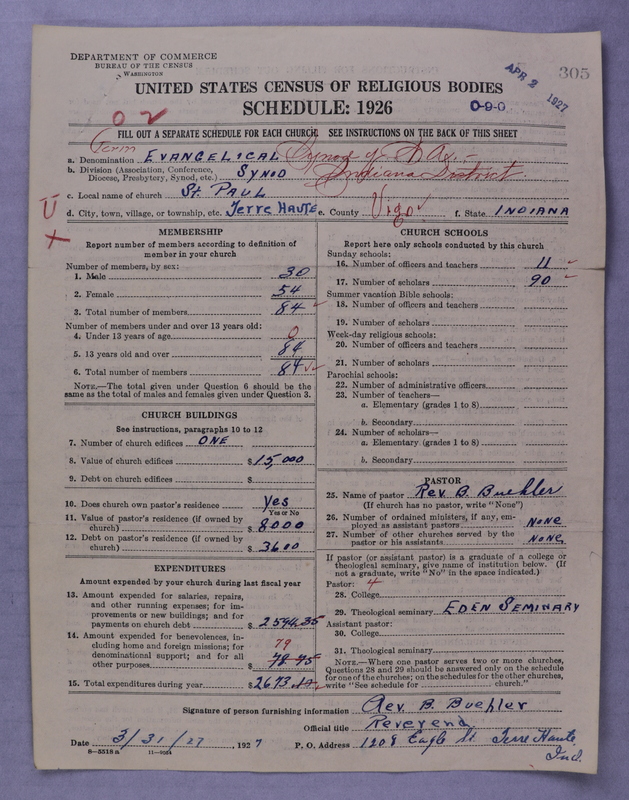 DEPARTMENT OF COMMERCE
BUREAU OF THE CENSUS
WASHINGTON
APR 2 1927
305
UNITED STATES CENSUS OF RELIGIOUS BODIES
SCHEDULE: 1926
0-9-0
02
FILL OUT A SEPARATE SCHEDULE FOR EACH CHURCH. SEE INSTRUCTIONS ON THE BACK OF THIS SHEET
a. Denomination EVANGELICAL Synod of N. A.
b. Division (Association, Conference, Diocese, Presbytery, Synod, etc.) SYNOD Indiana District
c. Local name of church St. PAUL
d. City, town, village, or township, etc. Terre HAUTE e. County Vigo f. State INDIANA
MEMBERSHIP
Report number of members according to definition of
member in your church
Number of members, by sex:
1. Male 30
2. Female 54
3. Total number of members 84
Number of members under and over 13 years old:
4. Under 13 years of age 0
5. 13 years old and over 84
6. Total number of members 84
NOTE.—The total given under Question 6 should be
same as the total of males and females given under Question 3.
CHURCH BUILDINGS
See instructions, paragraphs 10 to 12
7. Number of church edifices ONE
8. Value of church edifices $15,000
9. Debt on church edifices $
10. Does church own pastor's residence Yes
Yes or No
11. Value of pastor's residence (if owned by
church) $ 8000
12. Debt on pastor's residence (if owned by
church) $ 3600
EXPENDITURES
Amount expended by your church during last fiscal year
13. Amount expended for salaries, repairs,
and other running expenses; for im-
provements or new buildings; and for
payments on church debt $ 2594.35
14. Amount expended for benevolences, in-
cluding home and foreign missions; for
denominational support; and for all
other purposes $ 78.75
79
15. Total expenditures during year $2673
CHURCH SCHOOLS
Report here only schools conducted by this church
Sunday schools:
16. Number of officers and teachers 11
17. Number of scholars 90
Summer vacation Bible schools:
18. Number of officers and teachers
19. Number of scholars
Week-day religious schools:
20. Number of officers and teachers
21. Number of scholars
Parochial schools:
22. Number of administrative officers
23. Number of teachers—
a. Elementary (grades 1 to 8)
b. Secondary
24. Number of scholars—
a. Elementary (grades 1 to 8)
b. Secondary
PASTOR
25. Name of pastor Rev. B. Buehler
(If church has no pastor, write "None")
26. Number of ordained ministers, if any, em-
ployed as assistant pastors NONE
27. Number of other churches served by the
pastor or his assistants NONE
If pastor (or assistant pastor) is a graduate of a college or
theological seminary, give name of institution below. (If
not a graduate, write "No" in the space indicated.)
Pastor: 4
28. College
29. Theological seminary EDEN SEMINARY
Assistant pastor:
30. College
31. Theological seminary
NOTE.—Where one pastor serves two or more churches,
Questions 28 and 29 should be answered only on the schedule
for one of the churches; on the schedules for the other churches,
write "See schedule for church."
Signature of person furnishing information Rev. B. Buehler
Official title Reverend
Date 3/31/27, 1927 P. O. Address 1208 Eagle St. Terre Haute
Ind.
8—5518a 11—9054